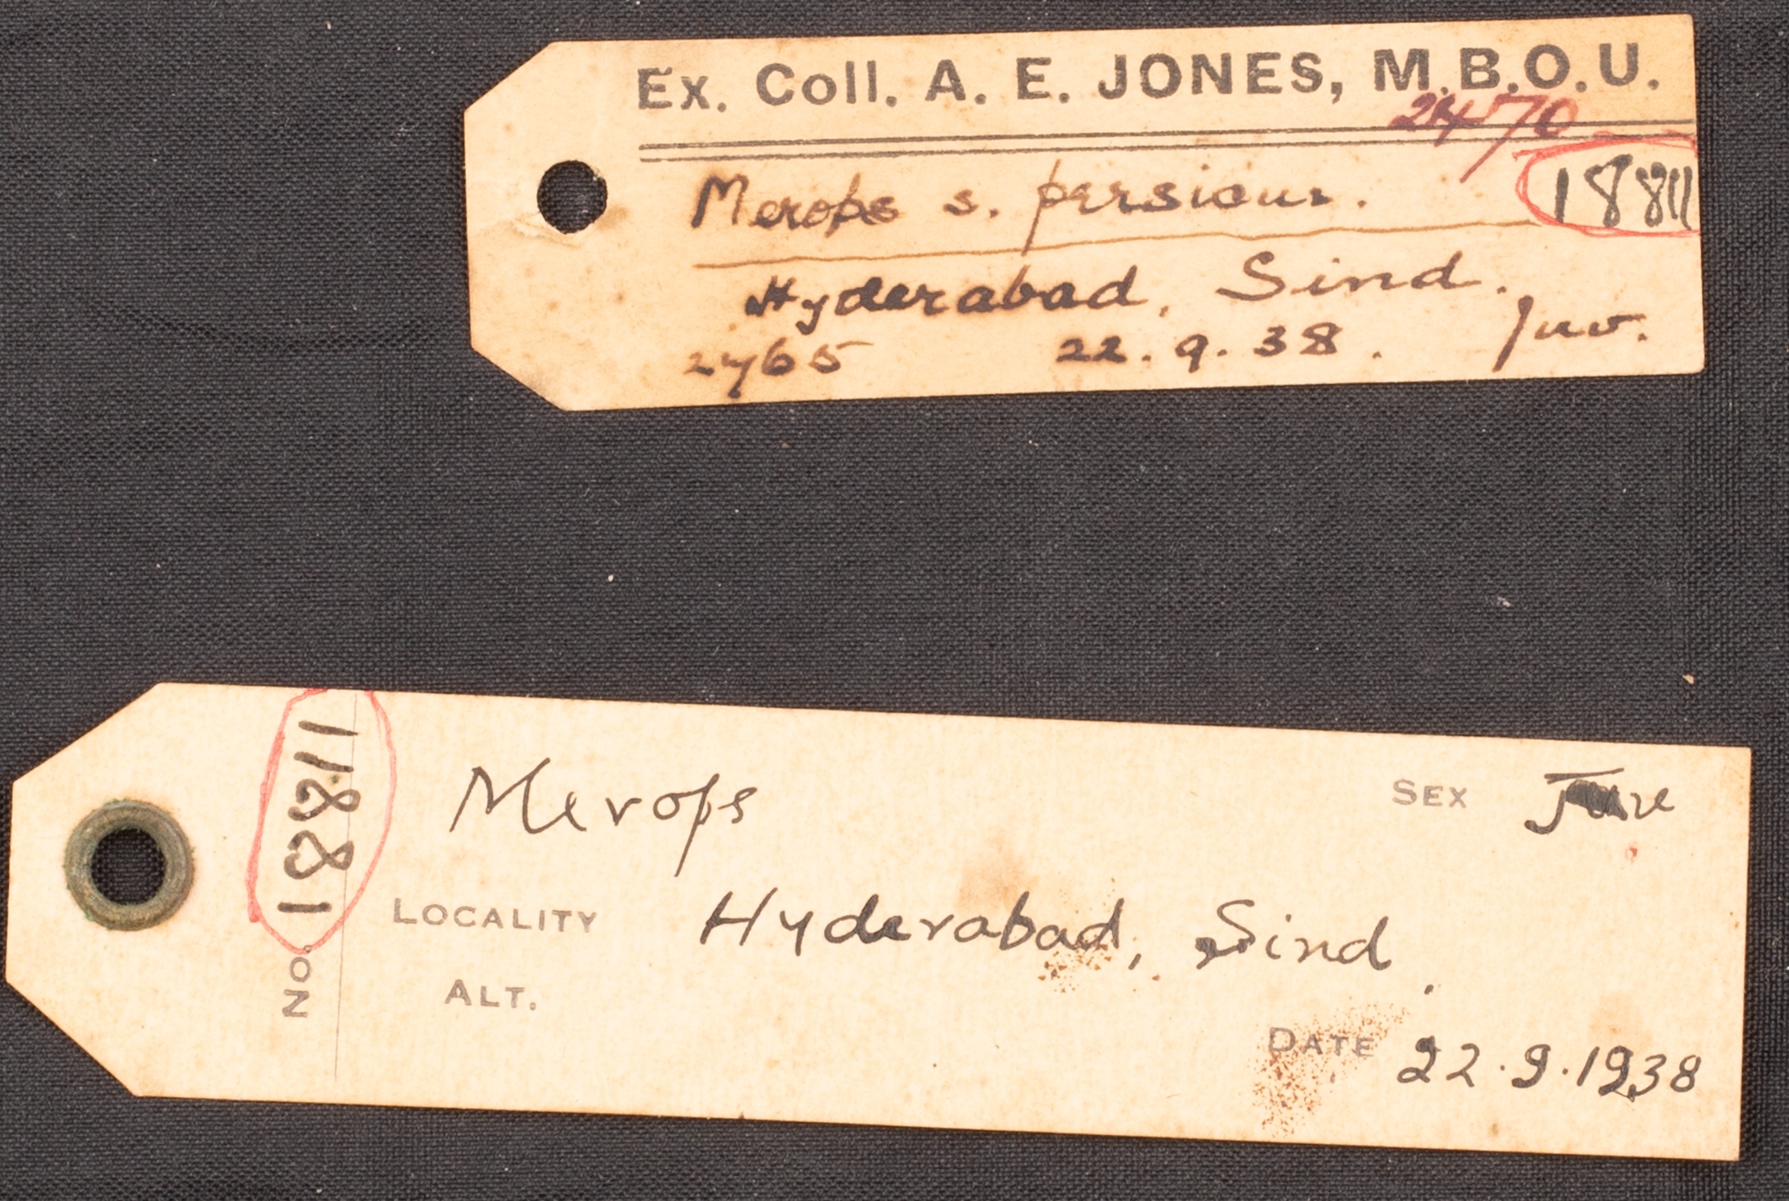 Ex. Coll. A. E. JONES, M.B.O.U.
2470
Merops s. persicus.
18811
Hyderabad, Sind.
2465 22.9.38. Juv.
No. 18811
Merops
SEX Juve
LOCALITY Hyderabad, Sind.
ALT.
DATE 22.9.1938